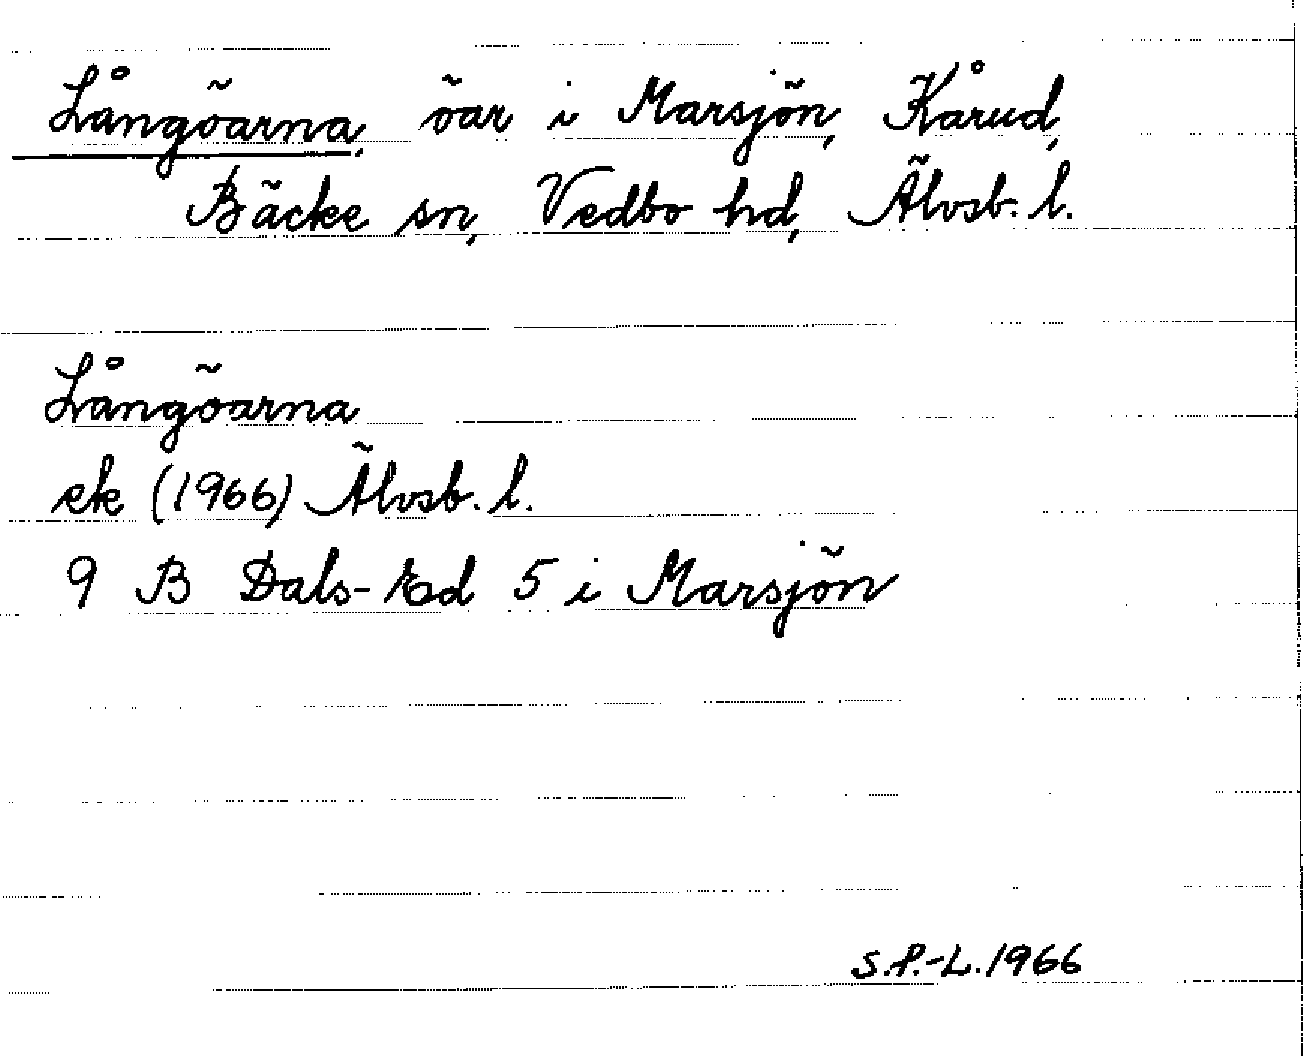 Långöarna, öar i Marsjön, Kårud,
Bäcke sn, Vedbo hd, Älvsb. l.
Långöarna
ek (1966) Älvsb. l.
9 B Dals-Ed 5 i Marsjön
S.P.-L. 1966